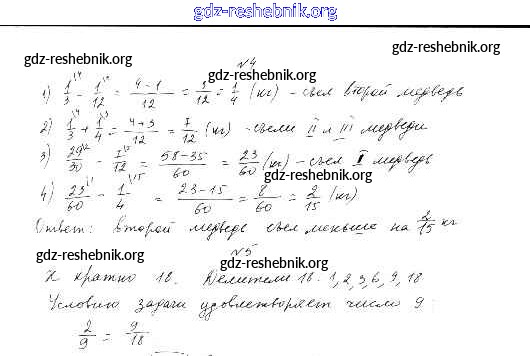 gdz-reshebnik.org
gdz-reshebnik.org
gdz-reshebnik.org
№4
gdz-reshebnik.org
1) 1/3 \4 - 1/12 = (4-1)/12 = 3/12 = 1/4 (кг) - съел второй медведь
2) 1/3 \4 + 1/4 \3 = (4+3)/12 = 7/12 (кг) - съели II и III медведи
3) 29/30 \2 - 7/12 \5 = (58-35)/60 = 23/60 (кг) - съел I медведь
gdz-reshebnik.org
4) 23/60 \1 - 1/4 \15 = (23-15)/60 = 8/60 = 2/15 (кг)
Ответ: второй медведь съел меньше на 2/15 кг
№5
gdz-reshebnik.org
gdz-reshebnik.org
X кратно 18. Делители 18: 1, 2, 3, 6, 9, 18
Условию задачи удовлетворяет число 9:
2/9 = 9/18